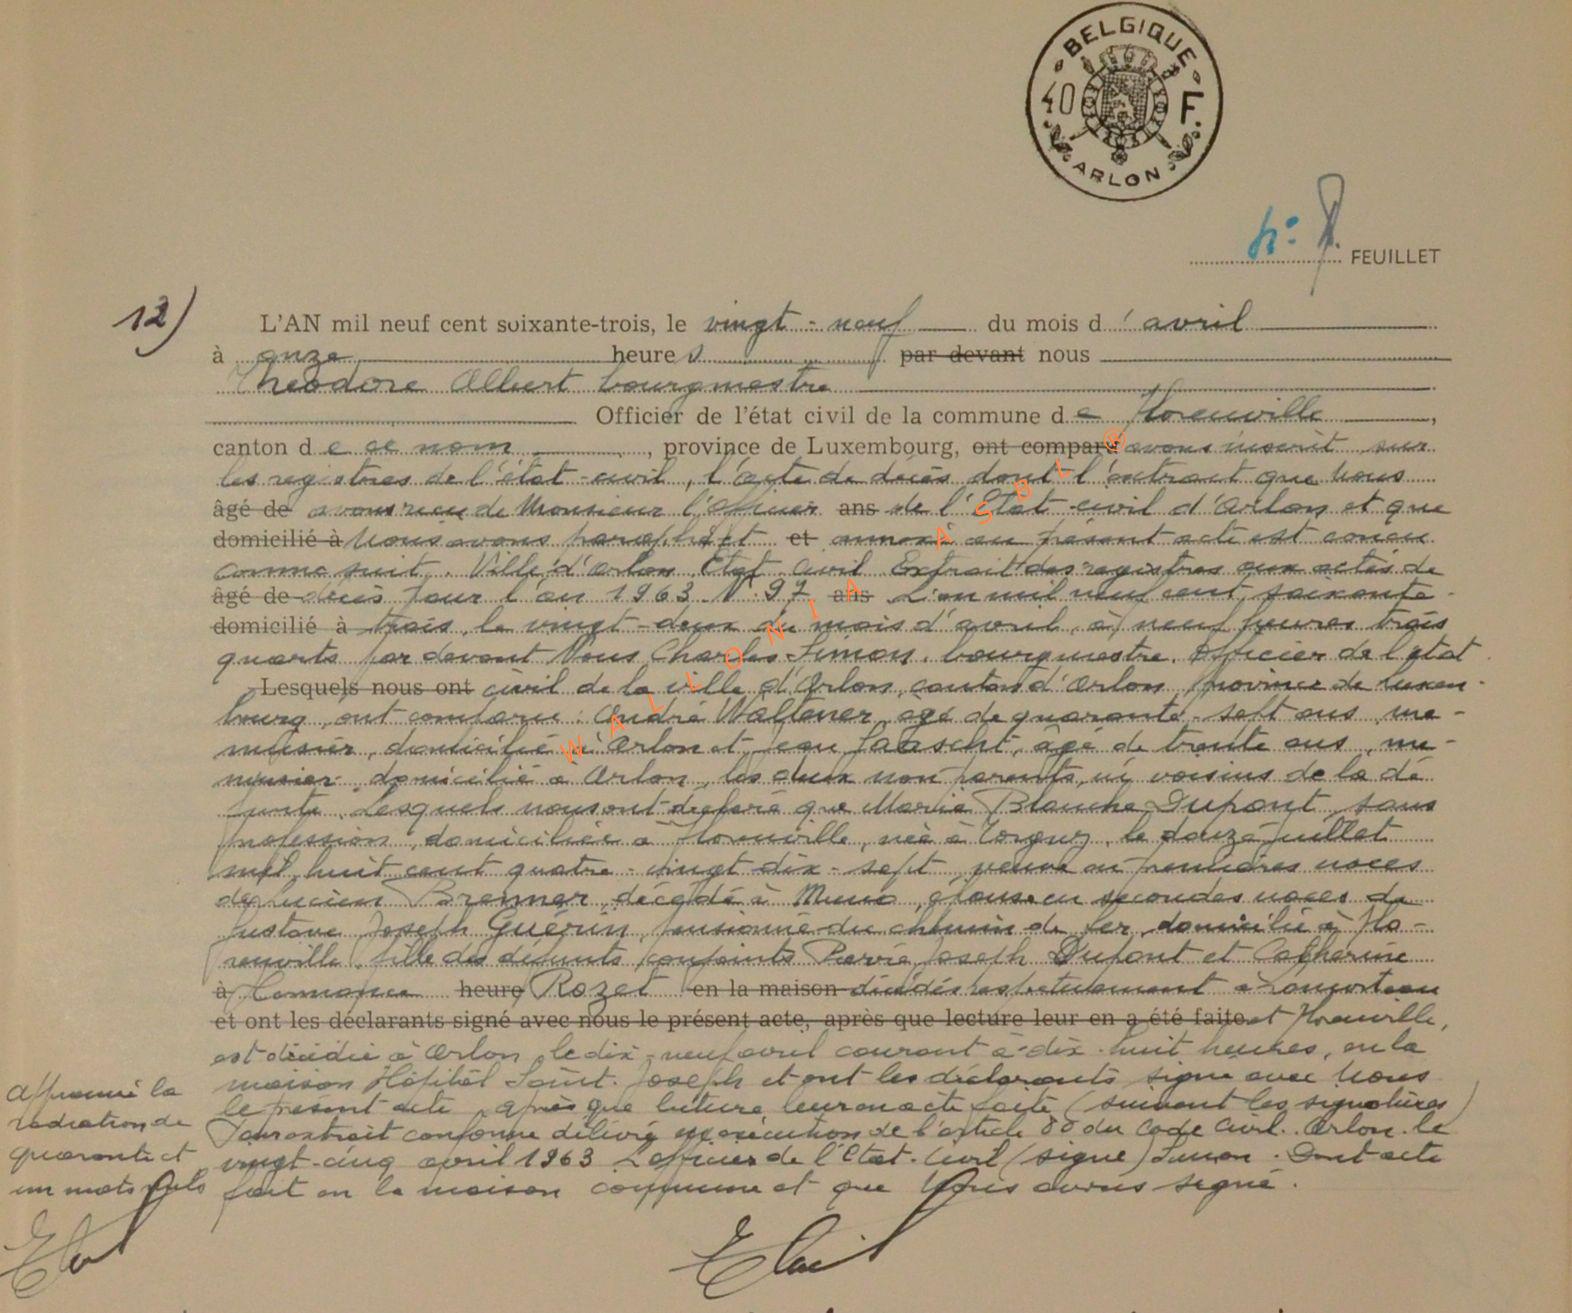 BELGIQUE
40 F.
ARLON
N° 8. FEUILLET
12)
L'AN mil neuf cent soixante-trois, le vingt-neuf du mois d'avril
à onze heures par devant nous
Théodore Albert bourgmestre
Officier de l'état civil de la commune de Florenville,
canton de ce nom, province de Luxembourg, ont comparu avons inscrit sur
les registres de l'état-civil, l'acte de décès dont l'extrait que Nous
âgé de avons reçu de Monsieur l'officier ans de l'Etat-civil d'Arlon et que
domicilié à Nous avons paraphé et et annexé au présent acte est conçu
comme suit. Ville d'Arlon Etat civil Extrait des registres aux actes de
âgé de décès pour l'an 1963 N° 97 ans L'an mil neuf cent soixante-
domicilié à trois, le vingt-deux du mois d'avril, à neuf heures trois
quarts par devant Nous Charles Simon, bourgmestre, Officier de l'état
Lesquels nous ont civil de la ville d'Arlon, canton d'Arlon, province de Luxem-
bourg, ont comparu: André Waltener, âgé de quarante-sept ans, me-
nuisier, domicilié à Arlon et Jean, âgé de trente ans, me-
nuisier, domicilié à Arlon, les deux non parents, ni voisins de la dé-
funte. Lesquels nous ont déclaré que Maria Blanche Dupont, sans
profession, domiciliée à Florenville, née à Torgny, le douze juillet
mil huit cent quatre-vingt-dix-sept, veuve en premières noces
de Lucien Bremer, décédé à Muno, épouse en secondes noces de
Gustave Joseph Guérin, pensionné du chemin de fer, domicilié à Flo-
renville, fille des défunts conjoints Pierre Joseph Dupont et Catherine
à heure Rozet en la maison décédés respectivement à
et ont les déclarants signé avec nous le présent acte, après que lecture leur en a été faite et Florenville,
est décédée à Arlon, le dix-neuf avril courant à dix-huit heures, en la
maison Hôpital Saint-Joseph et ont les déclarants signé avec Nous
le présent acte, après que lecture leur en a été faite (suivent les signatures)
Pour extrait conforme délivré en exécution de l'article 80 du Code civil. Arlon le
vingt-cinq avril 1963 L'officier de l'Etat-Civil (signé) Simon. Dont acte
fait en la maison commune et que Nous avons signé.
Approuvé la
radiation de
quarante et
un mots nuls
WALLONIA ASBL ®